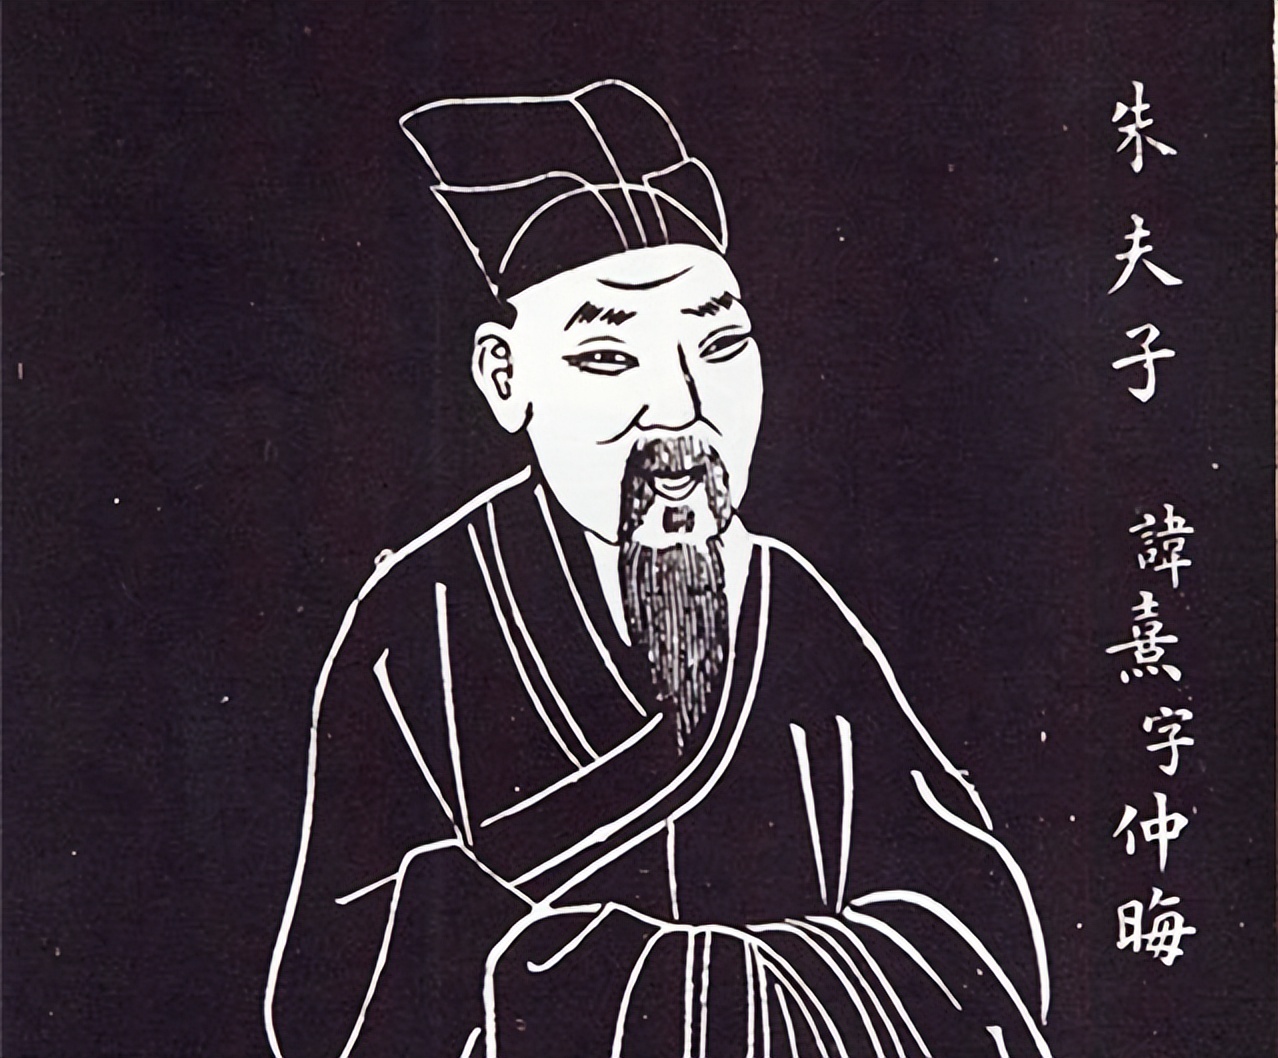 朱夫子 諱熹字仲晦